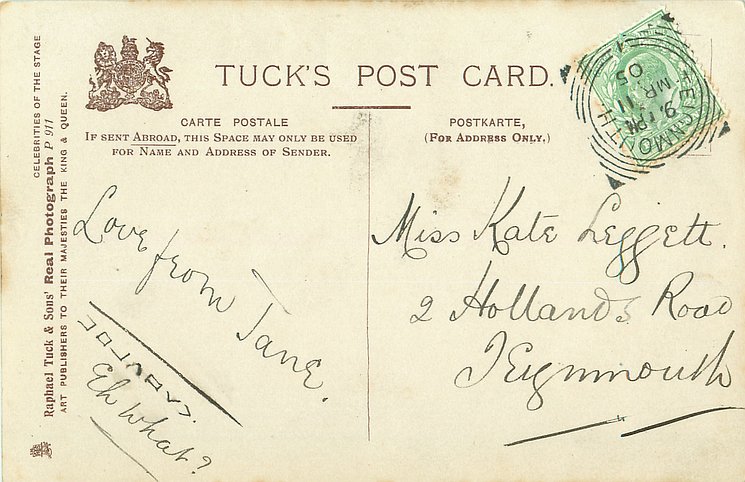 TUCK'S POST CARD.
CARTE POSTALE
IF SENT ABROAD, THIS SPACE MAY ONLY BE USED
FOR NAME AND ADDRESS OF SENDER.
POSTKARTE,
(FOR ADDRESS ONLY.)
CELEBRITIES OF THE STAGE
Raphael Tuck & Sons' Real Photograph P 911
ART PUBLISHERS TO THEIR MAJESTIES THE KING & QUEEN.
TEIGNMOUTH
9 PM
MR 11
05
Love from Jane.
Eh what?
Miss Kate Leggett.
2 Hollands Road
Teignmouth